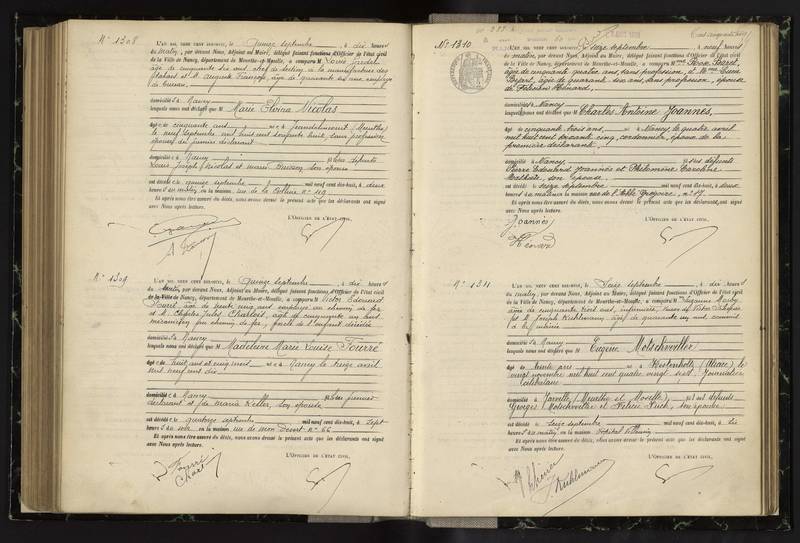 N° 1308
L'AN MIL NEUF CENT DIX-HUIT, le Quinze septembre, à dix heures
du matin, par devant Nous, Adjoint au Maire, délégué faisant fonctions d'Officier de l'état civil
de la Ville de Nancy, département de Meurthe-et-Moselle, a comparu M
âgé de cinquante six ans, chef de section à la manufacture des
tabacs et M. Auguste François, âgé de quarante six ans employé
de bureau
domicilié s à Nancy
lesquels nous ont déclaré que M Marie Elvina Nicolas
âgé e de cinquante ans né e à Jeandelincourt (Meurthe)
le neuf septembre mil huit cent soixante huit, sans profession
épouse du premier déclarant
domicilié e à Nancy fille des défunts
Louis Joseph Nicolas et Marie son épouse
est décédé e le quinze septembre mil neuf cent dix-huit, à deux
heures du matin, en sa maison, rue de la Colline n° 119
Et après nous être assuré du décès, nous avons dressé le présent acte que les déclarants ont signé
avec Nous après lecture.
L'OFFICIER DE L'ÉTAT CIVIL,
N° 1309
L'AN MIL NEUF CENT DIX-HUIT, le Quinze septembre, à dix heures
du matin, par devant Nous, Adjoint au Maire, délégué faisant fonctions d'Officier de l'état civil
de la Ville de Nancy, département de Meurthe-et-Moselle, a comparu M Victor Edouard
Fourré âgé de trente cinq ans employé au chemin de fer
et M. Charles Jules Charlois, âgé de cinquante un ans
mécanicien au chemin de fer, de l'enfant décédée
domicilié s à Nancy
lesquels nous ont déclaré que M Madeleine Marie Louise Fourré
âgé e de huit ans et cinq mois née à Nancy le treize avril
mil neuf cent dix
domicilié e à Nancy fille du premier
déclarant et de Maria Keller, son épouse
est décédé e le quatorze septembre mil neuf cent dix-huit, à sept
heures du soir en sa maison rue de Mon Désert n° 66
Et après nous être assuré du décès, nous avons dressé le présent acte que les déclarants ont signé
avec Nous après lecture.
L'OFFICIER DE L'ÉTAT CIVIL,
Fourré
N° 1310
L'AN MIL NEUF CENT DIX-HUIT, le Seize septembre, à neuf heures
du matin, par devant Nous, Adjoint au Maire, délégué faisant fonctions d'Officier de l'état civil
de la Ville de Nancy, département de Meurthe-et-Moselle, a comparu M
âgée de cinquante quatre ans, sans profession, et Mme
âgée de quarante six ans, sans profession, épouse
de Hénard
domicilié es à Nancy
lesquels nous ont déclaré que M Charles Antoine Joannès
âgé de cinquante trois ans né à Nancy le quatre avril
mil huit cent soixante cinq, cordonnier, époux de la
première déclarante
domicilié à Nancy fils des défunts
Pierre Edouard Joannès et Philomène Caroline
son épouse
est décédé le seize septembre mil neuf cent dix-huit, à deux
heures du matin en sa maison rue de l'Abbé Grégoire, n° 19
Et après nous être assuré du décès, nous avons dressé le présent acte que les déclarants ont signé
avec Nous après lecture.
L'OFFICIER DE L'ÉTAT CIVIL,
Joannès
Hénard
N° 1311
L'AN MIL NEUF CENT DIX-HUIT, le Seize septembre, à dix heures
du matin, par devant Nous, Adjoint au Maire, délégué faisant fonctions d'Officier de l'état civil
de la Ville de Nancy, département de Meurthe-et-Moselle, a comparu M Suzanne
âgée de cinquante trois ans, infirmière
et M. Joseph Kuhlmann âgé de quarante un ans
domicilié s à Nancy
lesquels nous ont déclaré que M Eugène Metschweiller
âgé de trente ans né à Kestenholtz (Alsace) le
vingt novembre mil huit cent quatre vingt sept, journalier
célibataire
domicilié à Jarville (Meurthe et Moselle) fils des défunts
Georges Metschweiller et son épouse
est décédé le seize septembre mil neuf cent dix-huit, à six
heures du matin en sa maison, hôpital Villemin
Et après nous être assuré du décès, nous avons dressé le présent acte que les déclarants ont signé
avec Nous après lecture.
L'OFFICIER DE L'ÉTAT CIVIL,
Kuhlmann